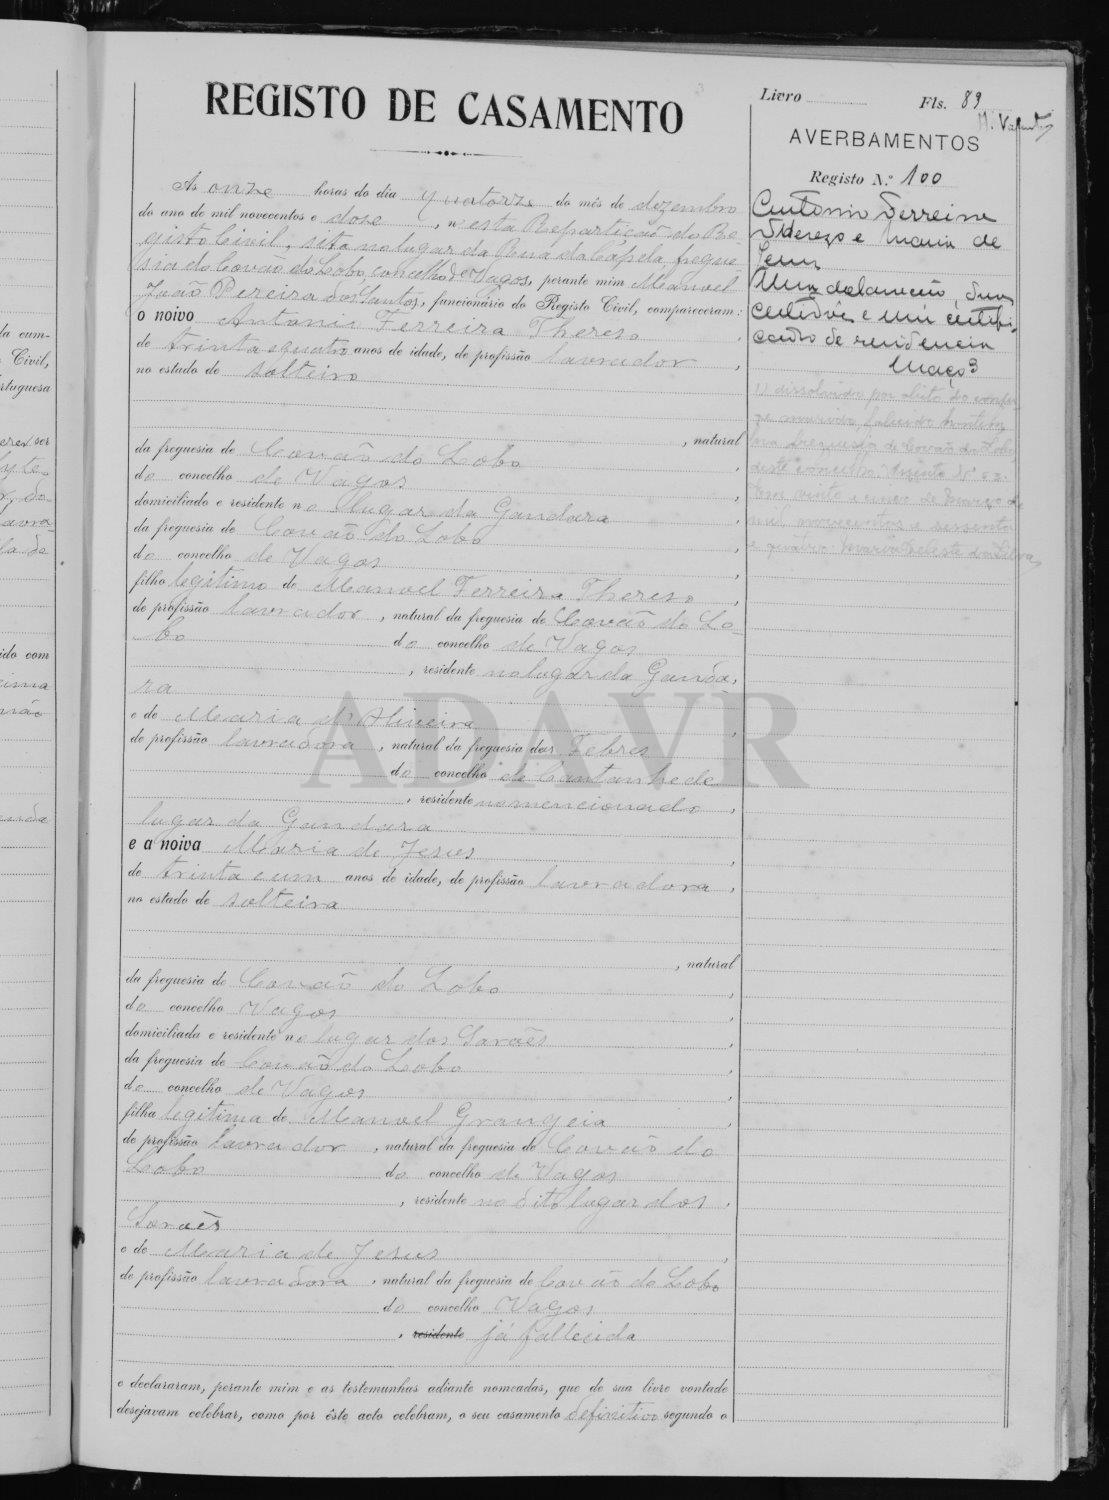 REGISTO DE CASAMENTO
Livro Fls. 89
AVERBAMENTOS
Registo N.º 100
Ás onze horas do dia quatorze do mês de dezembro
do ano de mil novecentos e dose, nesta Repartição do Re-
gisto Civil, sita no lugar da Cápela, fregue-
sia do Covão do Lobo, concelho de Vagos, perante mim Manoel
João Pereira dos Santos, funcionário do Registo Civil, compareceram:
o noivo Antonio Ferreira Thereso,
de trinta e quatro anos de idade, de profissão lavrador,
no estado de solteiro
, natural
da freguesia de Covão do Lobo,
do concelho de Vagos,
domiciliado e residente no lugar da Gandara,
da freguesia de Covão do Lobo,
do concelho de Vagos,
filho legitimo de Manoel Ferreira Thereso,
de profissão lavrador, natural da freguesia de Covão do Lo-
bo do concelho de Vagos
, residente no lugar da Ganda,
ra
e de Maria d'Oliveira,
de profissão lavradora, natural da freguesia de Febres
do concelho de Cantanhede
, residente no mencionado,
lugar da Gandara
e a noiva Maria de Jesus,
de trinta e um anos de idade, de profissão lavradora,
no estado de solteira
, natural
da freguesia de Covão do Lobo,
do concelho Vagos,
domiciliada e residente no lugar dos Saraēs,
da freguesia de Covão do Lobo,
do concelho de Vagos,
filha legitima de Manoel Grangeia,
de profissão lavrador, natural da freguesia de Covão do
Lobo do concelho de Vagos
, residente no dito lugar dos,
Saraēs
e de Maria de Jesus,
de profissão lavradora, natural da freguesia de Covão do Lobo
do concelho Vagos
, residente já fallecida
e declararam, perante mim e as testemunhas adiante nomeadas, que de sua livre vontade
desejavam celebrar, como por êste acto celebram, o seu casamento definitivo segundo o
Antonio Ferreira
Thereso e Maria de
Jesus
Uma declaração, duas
certidões e um certifi-
cado de residencia
Maço 3
1) dissolvido por obito do conju-
ge marido, falecido hontem
na freguesia de Covão do Lobo
deste concelho. Assento Nº
vinte e cinco de Março de
mil novecentos e sessenta
e quatro. Maria Celeste da Silva
ADAVR